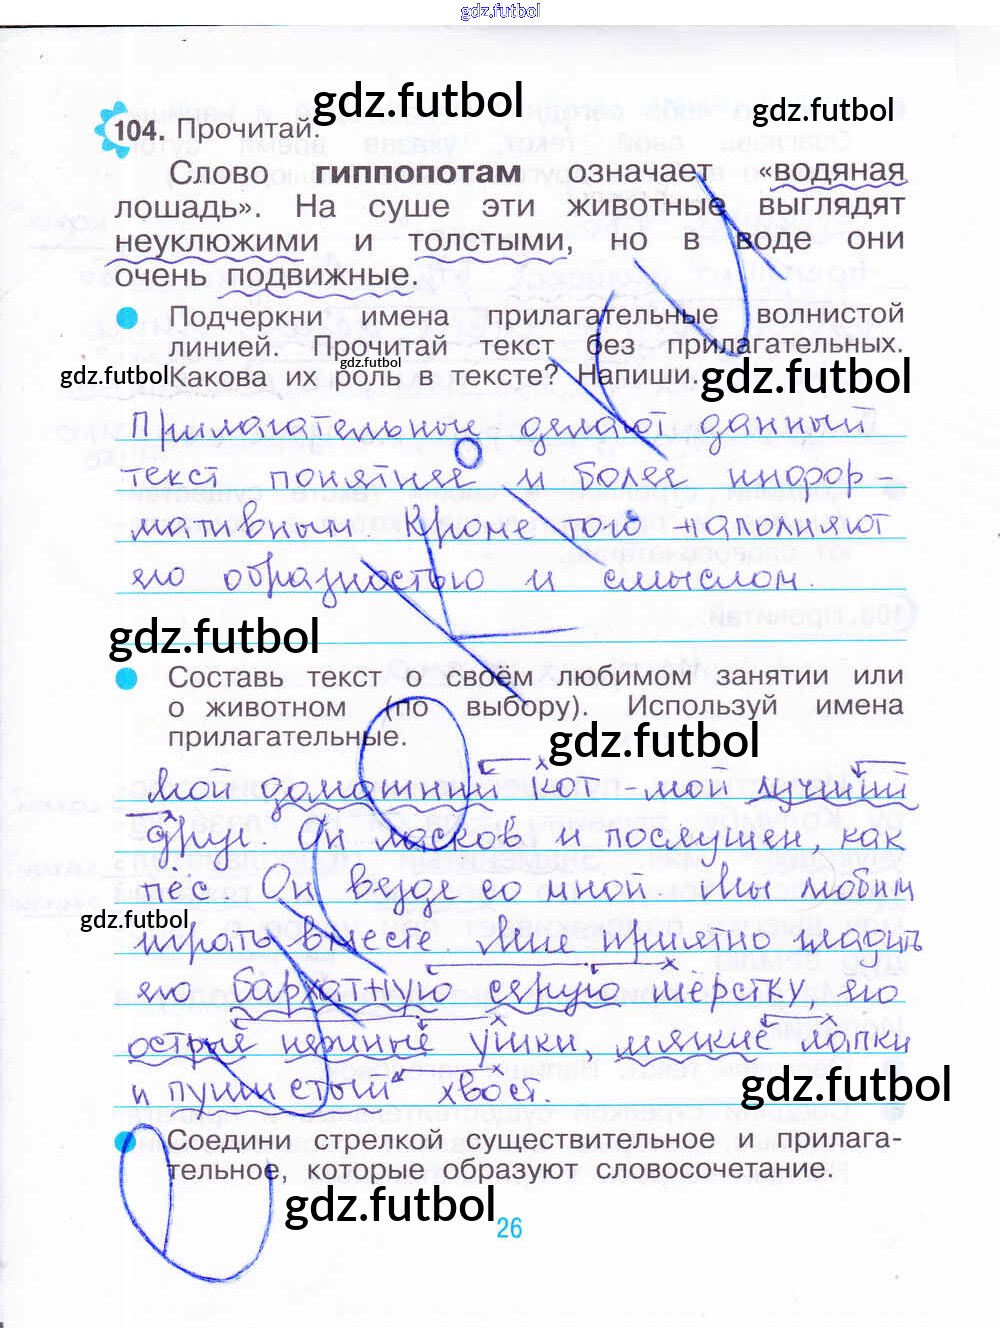 gdz.futbol
gdz.futbol
gdz.futbol
104. Прочитай.
Слово гиппопотам означает «водяная
лошадь». На суше эти животные выглядят
неуклюжими и толстыми, но в воде они
очень подвижные.
Подчеркни имена прилагательные волнистой
линией. Прочитай текст без прилагательных.
gdz.futbol
gdz.futbol
Какова их роль в тексте? Напиши.
gdz.futbol
Прилагательные делают данный
текст понятнее и более инфор-
мативным. Кроме того наполняют
его образностью и смыслом.
gdz.futbol
Составь текст о своём любимом занятии или
о животном (по выбору). Используй имена
прилагательные.
gdz.futbol
Мой домашний кот - мой лучший
друг. Он ласков и послушен, как
пёс. Он везде со мной. Мы любим
gdz.futbol
играть вместе. Мне приятно гладить
его бархатную серую шёрстку, его
острые нежные ушки, мягкие лапки
и пушистый хвост.
gdz.futbol
Соедини стрелкой существительное и прилага-
тельное, которые образуют словосочетание.
gdz.futbol
26